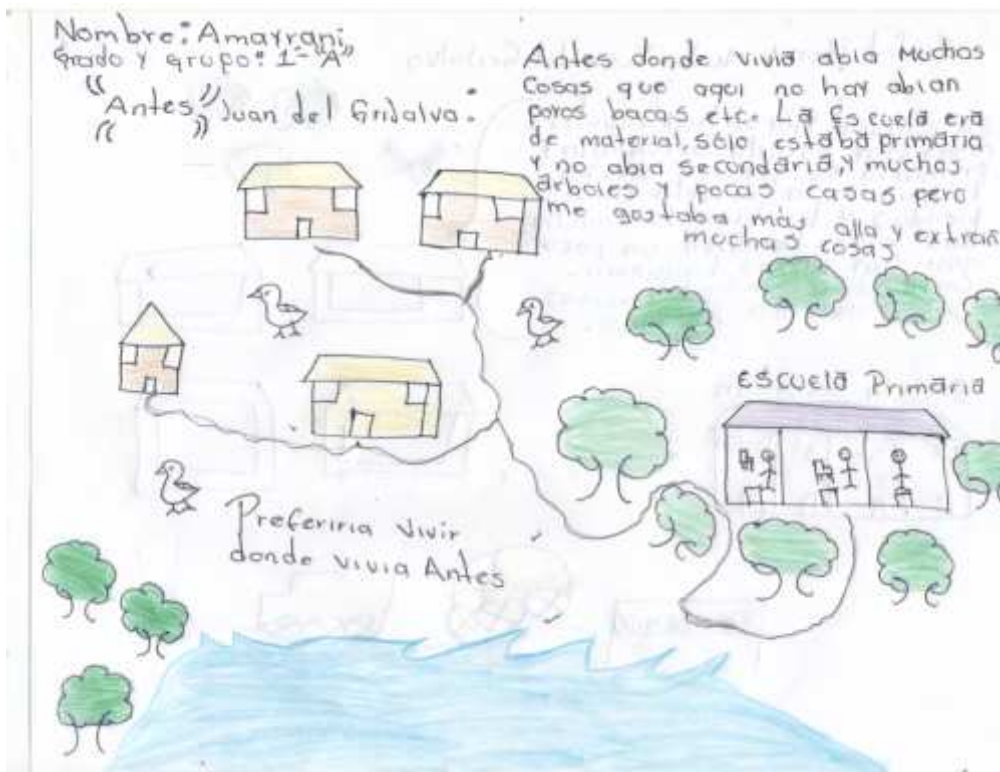 Nombre: Amayrani
Grado y grupo: 1- "A"
"Antes" Juan del Grijalva.
Antes donde vivia abia Muchas
Cosas que aqui no hay abian
poros bacas etc. La Escuela era
de material, sólo estaba primaria
y no abia secundaria, y muchos
árboles y pocas casas pero
me gostaba más alla y extrañ
muchas cosas
Escuela Primaria
Preferiria vivir
donde vivia Antes